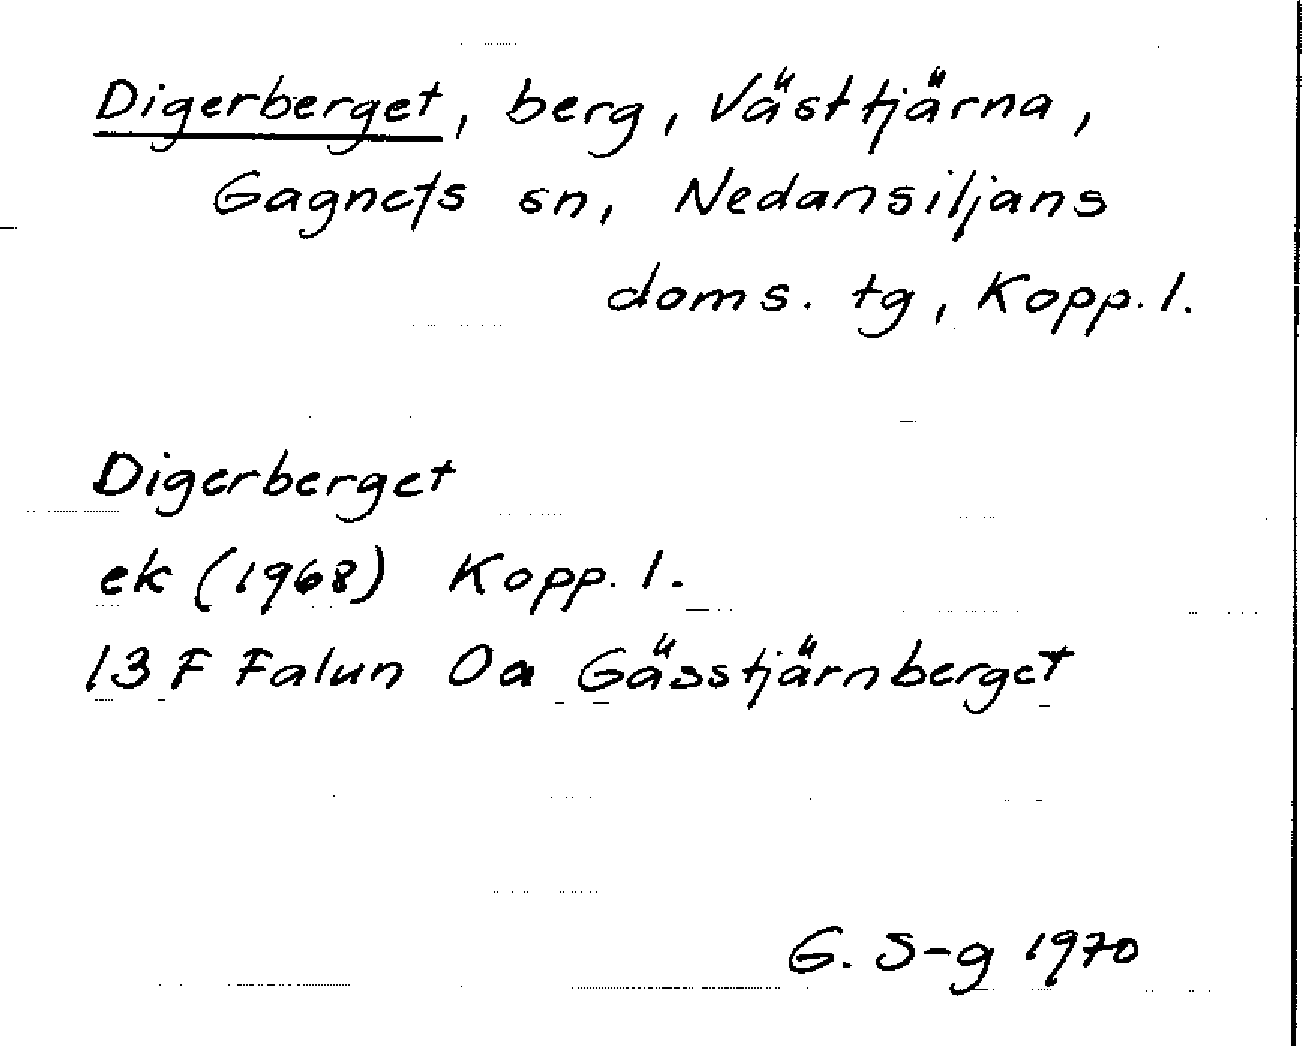 Digerberget, berg, Västtjärna,
Gagnefs sn, Nedansiljans
doms. tg, Kopp. l.
Digerberget
ek (1968) Kopp. l.
13 F Falun 0a Gässtjärnberget
G. S-g 1970